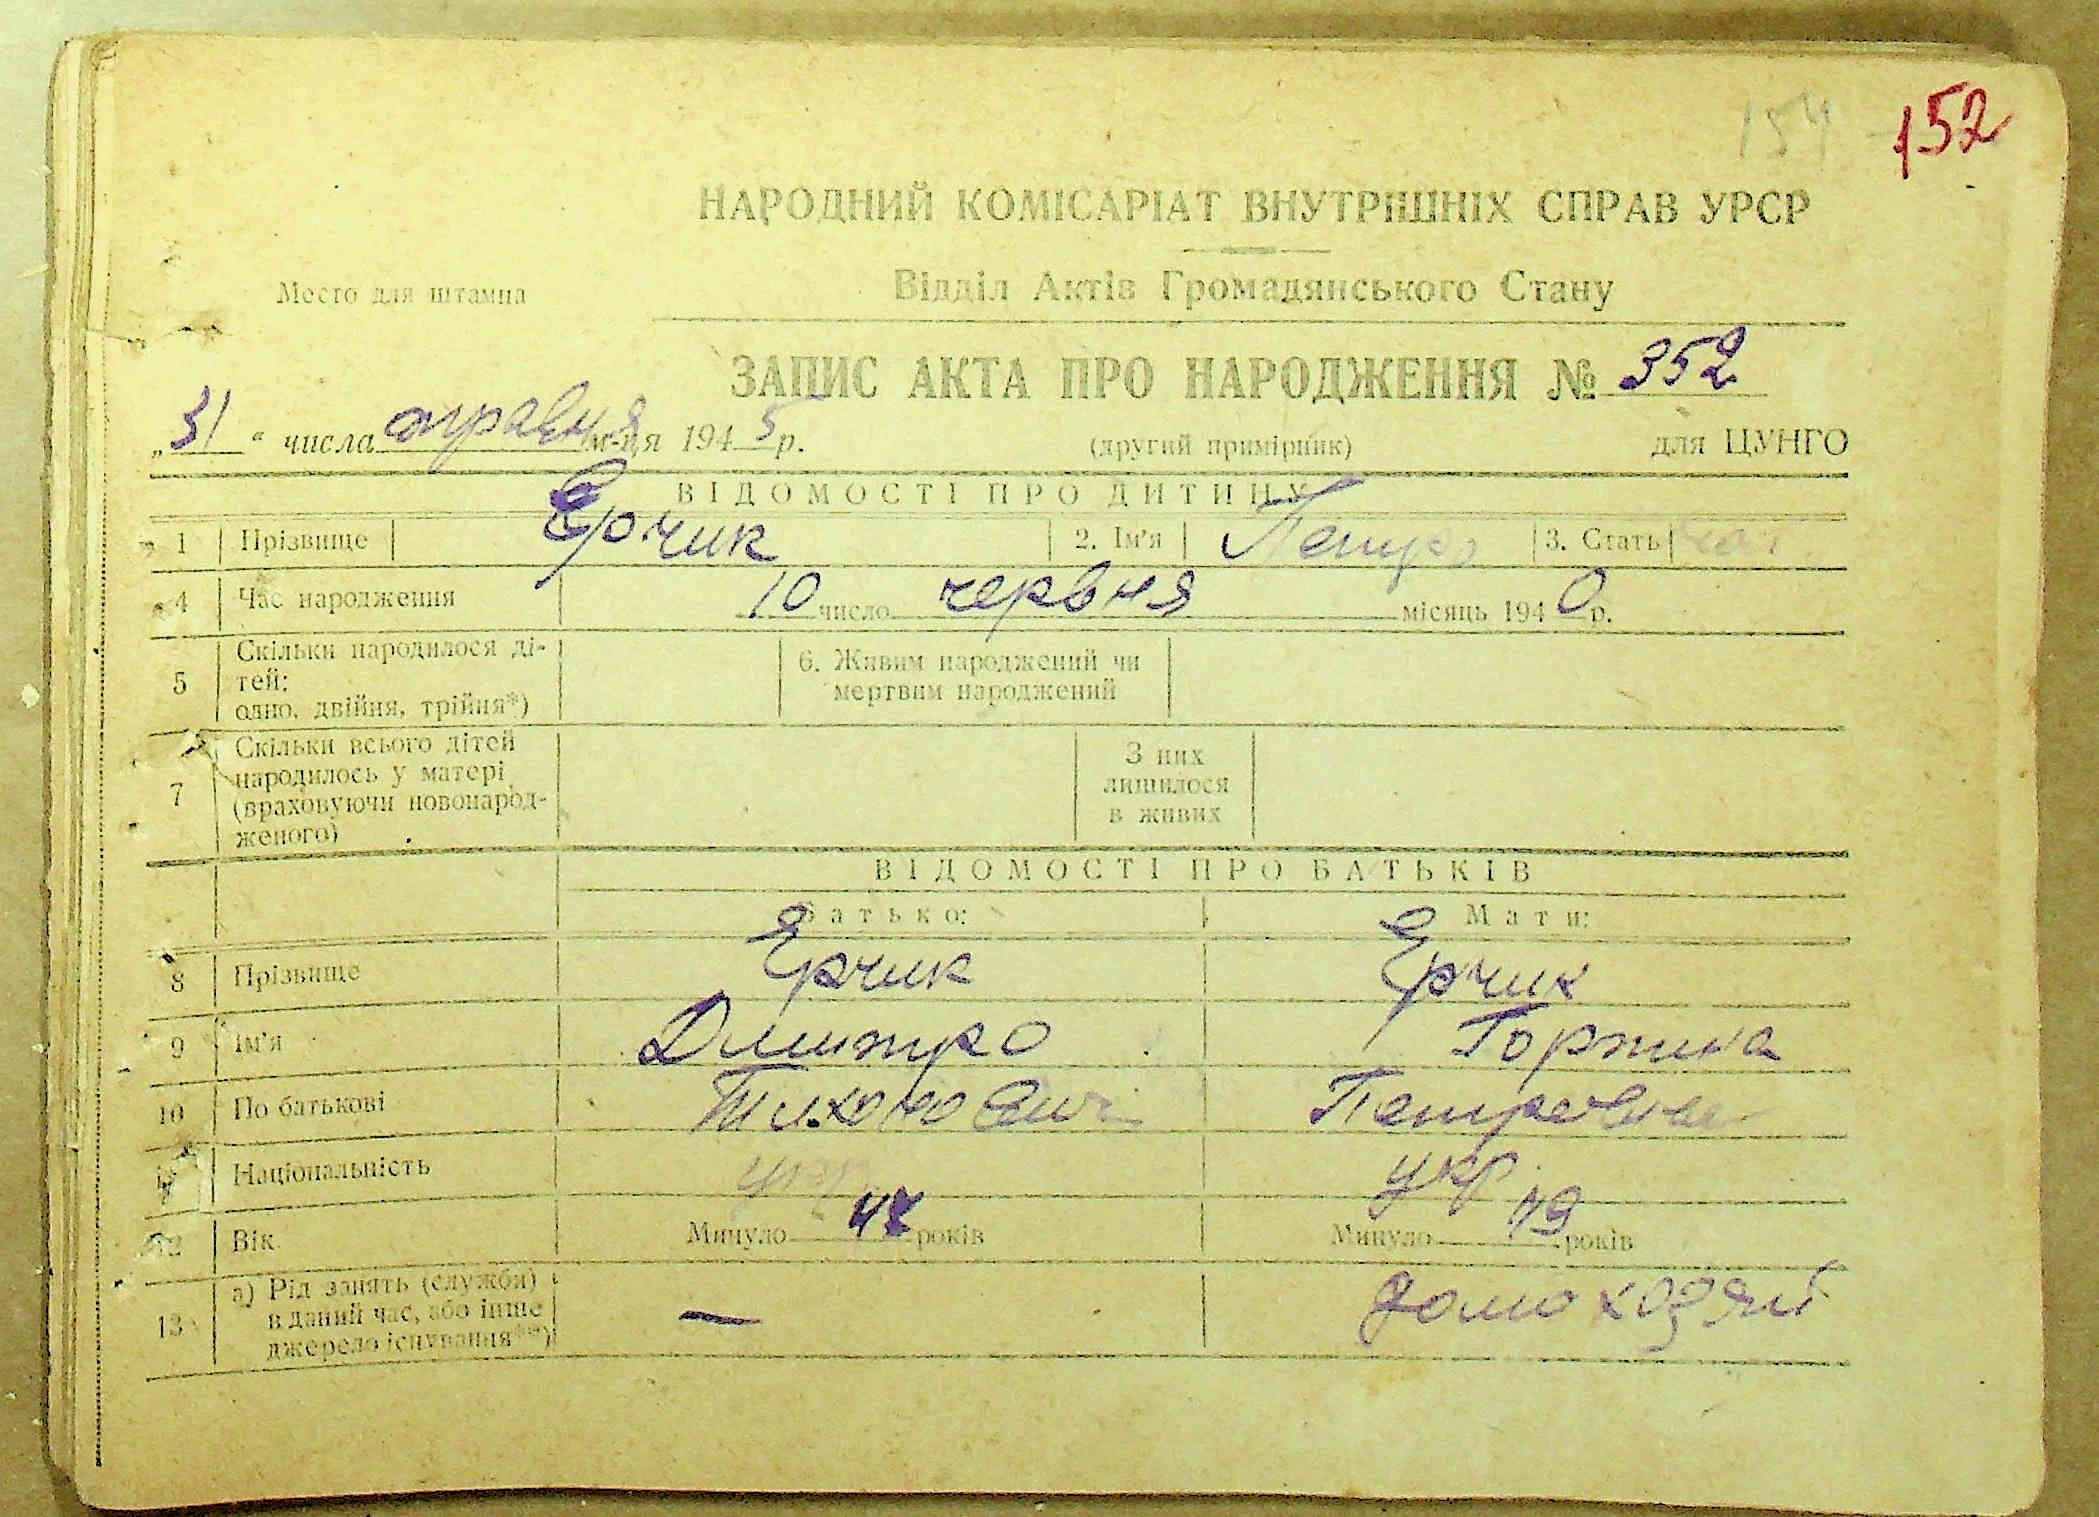 154 152
НАРОДНИЙ КОМІСАРІАТ ВНУТРІШНІХ СПРАВ УРСР
Место для штампа
Відділ Актів Громадянського Стану
ЗАПИС АКТА ПРО НАРОДЖЕННЯ № 352
„31“ числа травня м-ця 1945 р. (другий примірник) для ЦУНГО
ВІДОМОСТІ ПРО ДИТИНУ
1 Прізвище Єрчик 2. Ім'я Петро 3. Стать чол
4 Час народження 10 число червня місяць 1940 р.
5 Скільки народилося ді-
тей:
одно, двійня, трійня*)
6. Живим народжений чи
мертвим народжений
7 Скільки всього дітей
народилось у матері
(враховуючи новонарод-
женого)
З них
лишилося
в живих
ВІДОМОСТІ ПРО БАТЬКІВ
Батько: Мати:
8 Прізвище Єрчик Єрчик
9 Ім'я Дмитро
10 По батькові Тихонович Петровна
Національність укр укр.
12 Вік Минуло років Минуло 49 років
13 а) Рід занять (служби)
в даний час, або інше
джерело існування**)
— домохозяй